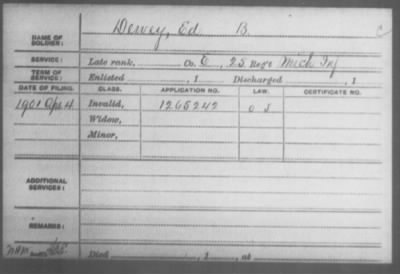 NAME OF SOLDIER: Dewey, Ed B.
SERVICE: Late rank, Co. E, 25 Reg't Mich Inf
TERM OF SERVICE: Enlisted , 1 Discharged , 1
DATE OF FILING. CLASS. APPLICATION NO. LAW. CERTIFICATE NO.
1901 Apr 4 Invalid, 1265242
Widow,
Minor,
ADDITIONAL SERVICES:
REMARKS:
Died , 1 , at